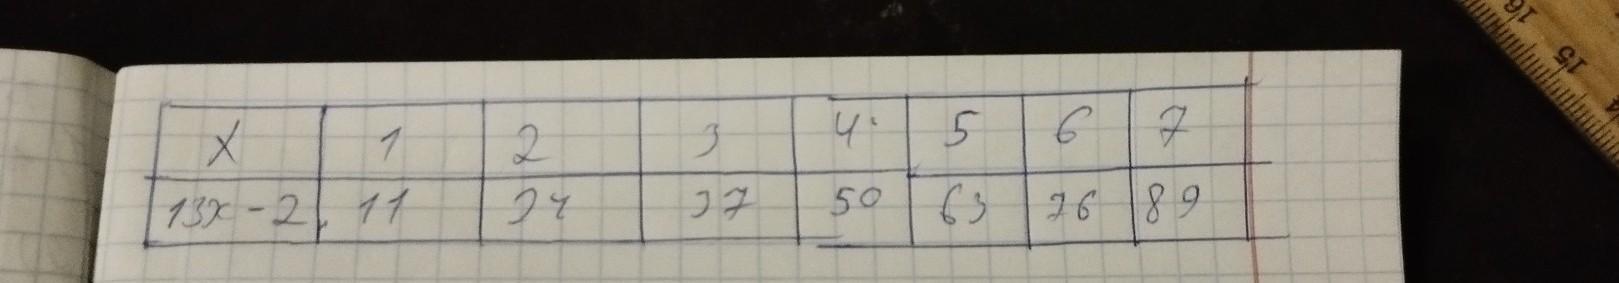 X 1 2 3 4 5 6 7
13x - 2 11 24 37 50 63 76 89
16
15